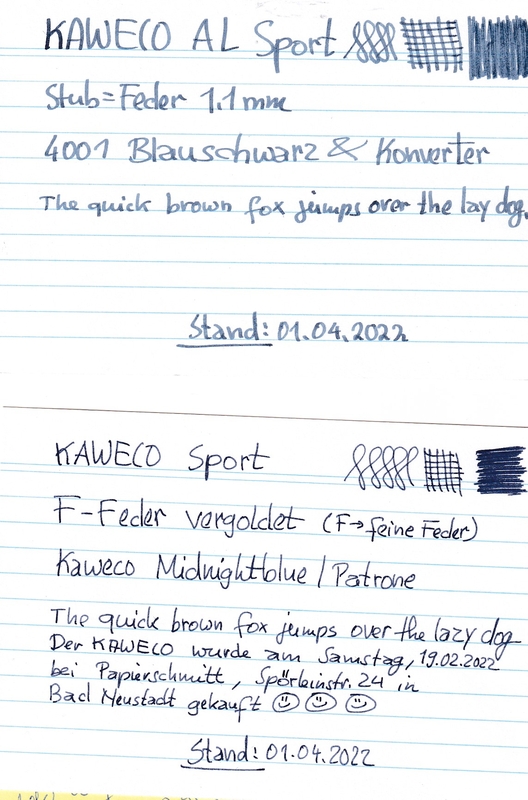 KAWECO AL Sport
Stub=Feder 1.1 mm
4001 Blauschwarz & Konverter
The quick brown fox jumps over the lay dog.
Stand: 01.04.2022
KAWECO Sport
F-Feder vergoldet (F→feine Feder)
Kaweco Midnightblue / Patrone
The quick brown fox jumps over the lazy dog
Der KAWECO wurde am Samstag, 19.02.2022
bei Papierschmitt, Spörleinstr. 24 in
Bad Neustadt gekauft ☺ ☺ ☺
Stand: 01.04.2022